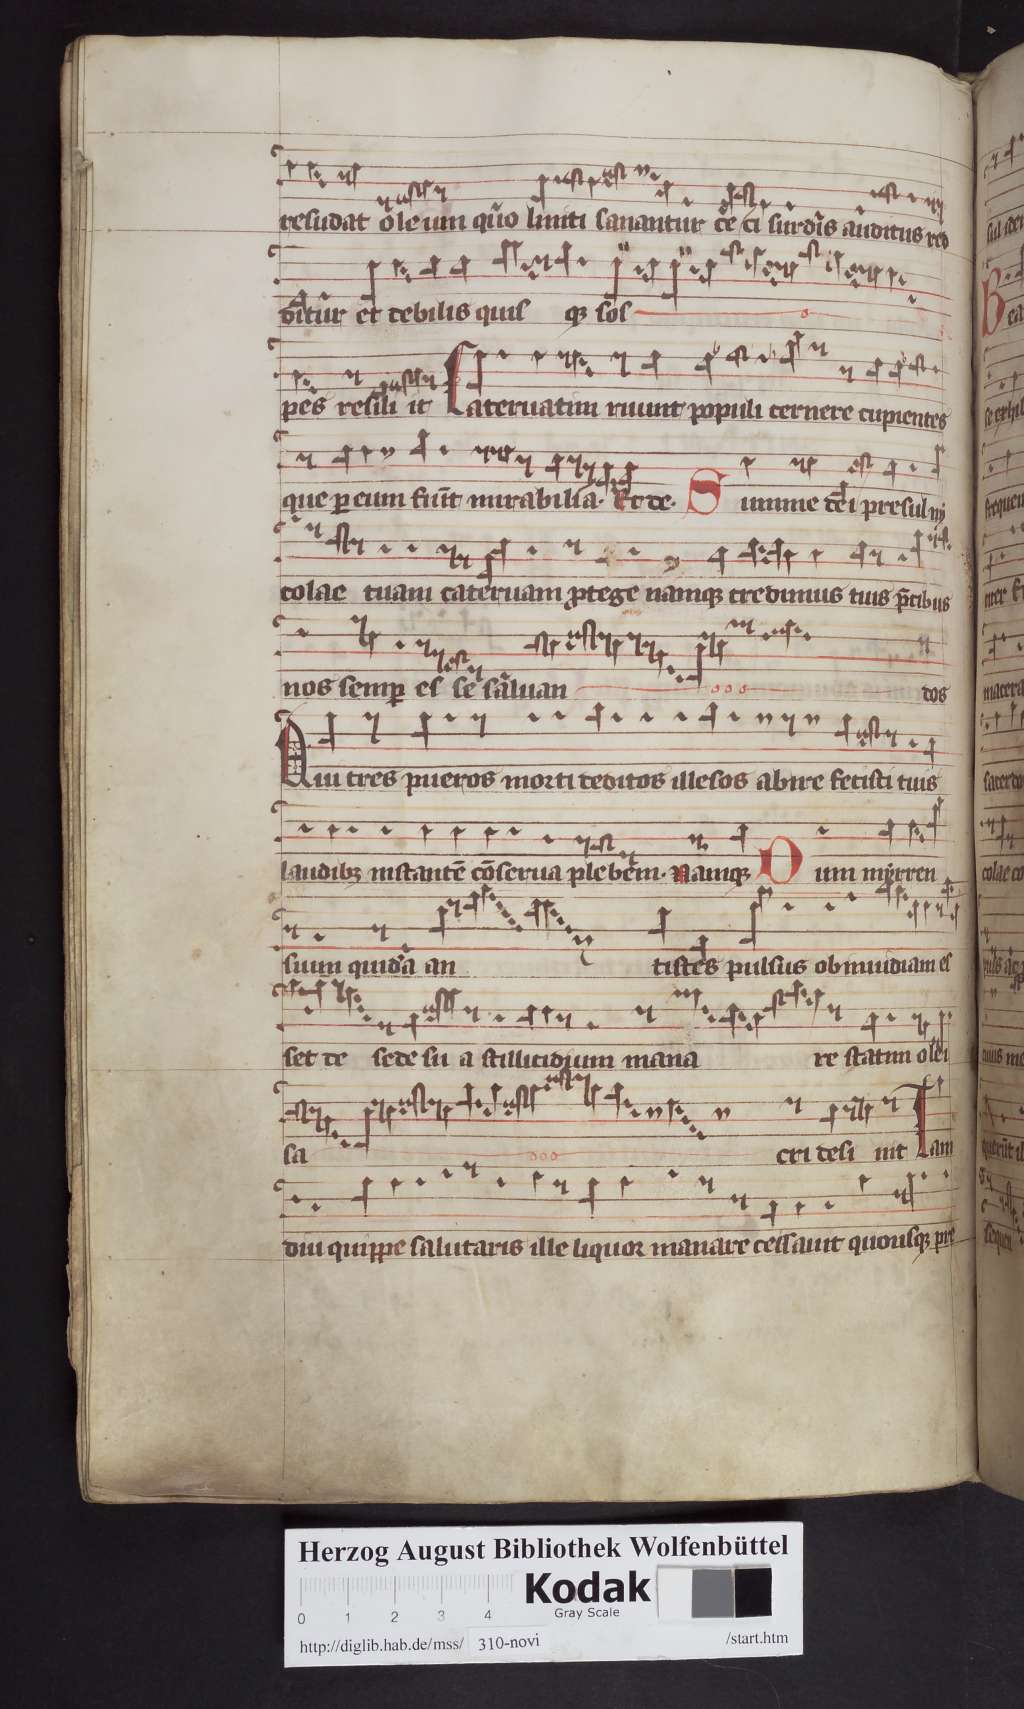 resudat oleum quo liniti sanantur ceci surdis auditus red
ditur et debilis quis q3 sos
pes resiliit Cateruatim ruunt populi cernere cupientes
que per eum fiunt mirabilia. Et de. Summe dei presul ni
colae tuam cateruam protege namq3 credimus tuis precibus
nos semper es se saluan dos
Qui tres pueros morti deditos illesos abire fecisti tuis
laudib3 instantē cōserua plebem. Namq3 Dum mirren
sium quidā an tistes pulsus ob inuidiam es
set de sede su a stillicidium mana re statim olei
sa cri desi nit Iam
diu quippe salutaris ille liquor manare cessauit quousq3 pre
Herzog August Bibliothek Wolfenbüttel
0 1 2 3 4
Kodak
Gray Scale
http://diglib.hab.de/mss/ 310-novi /start.htm